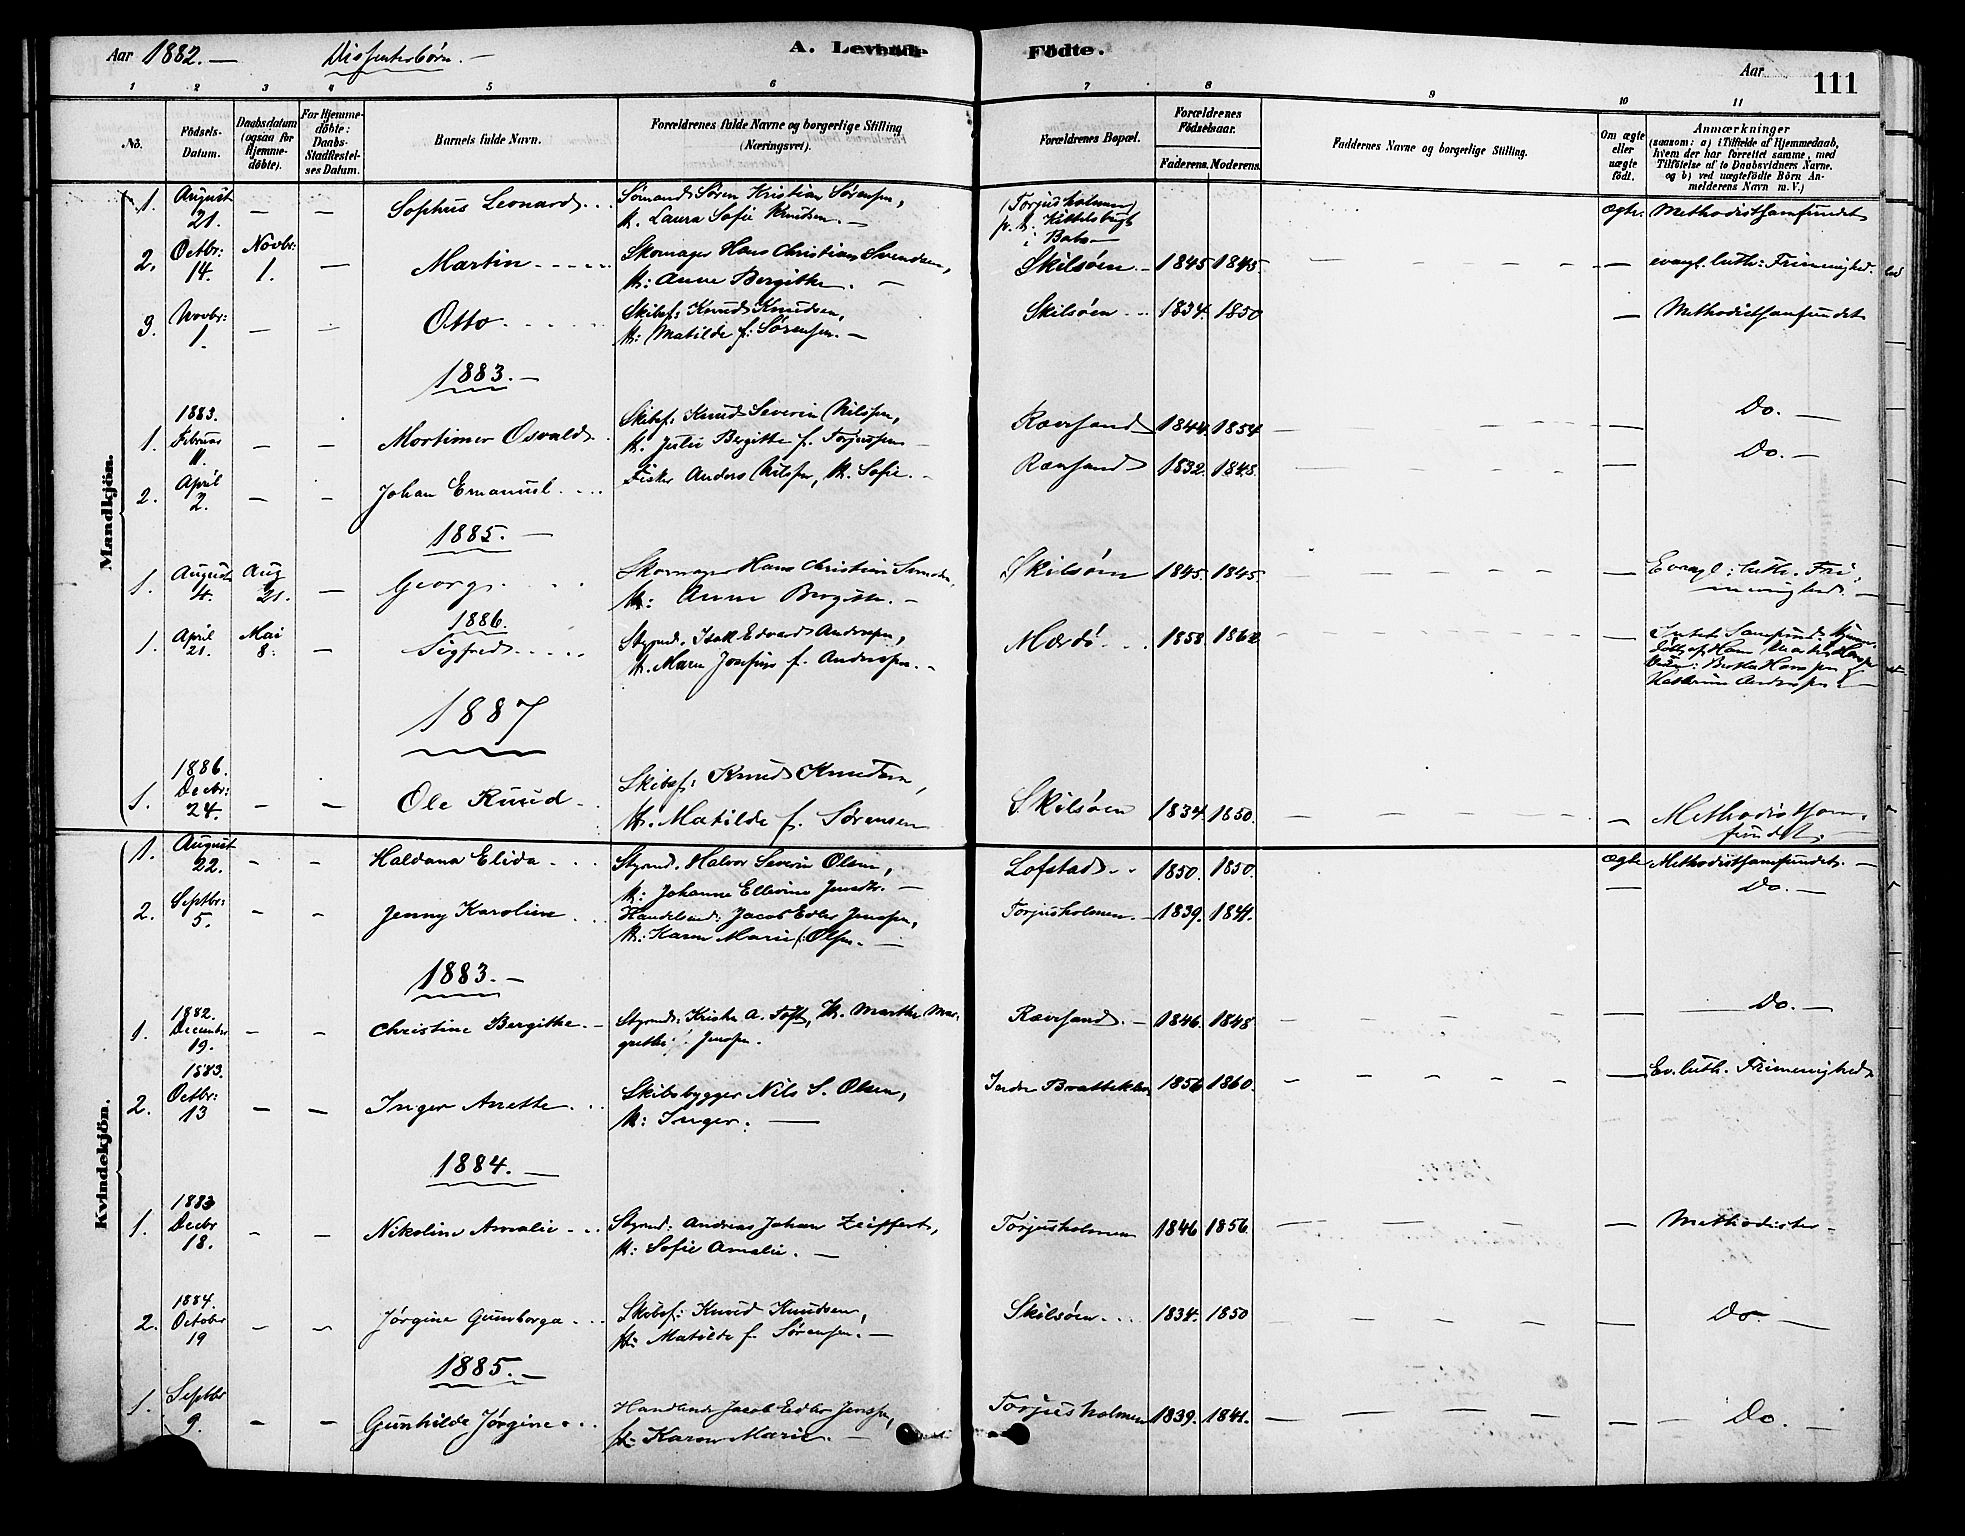 Aar 1882. — Dissenterbørn. — A. Levende Födte. Aar 111
1 2 3 4 5 6 7 8 9 10 11
No.
Födsels-Datum.
Daabsdatum (ogsaa for Hjemmedöbte).
For Hjemmedöbte: Daabs-Stadfæstelses Datum.
Barnets fulde Navn.
Forældrenes fulde Navne og borgerlige Stilling (Næringsvei).
Forældrenes Bopæl.
Forældrenes Födselsaar.
Faderens. Moderens.
Faddernes Navne og borgerlige Stilling.
Om ægte eller uægte födt.
Anmærkninger
(saasom: a) i Tilfælde af Hjemmedaab, hvem der har forrettet samme, med Tilföielse af to Daabsvidners Navne. og b) ved uægtefödte Börn Anmelderens Navn m. V.)
Mandkjön.
1. August 21. — — Sophus Leonard . . Sømand Søren Kristian Sørensen, H. Laura Sofie Knudsen. — (Torjusholmen) i Ægte: Methodistsamfundet
2. Octbr: 14. Novbr: 1. — Martin - - - - - Skomager Hans Christian Svendsen, H: Anne Bergitte. — Skilsøen. — 1845 1845 — — evangl. luth: Frimenighed.
3. Novbr: 1. — — Otto . . . . Skibsf: Knud Knudsen, H: Matilde f. Sørensen. — Skilsøen . . 1834. 1850 — Methodistsamfundet
1883. —
1. 1883. Februar 11. — — Mortimer Osvald . Skibsf: Knud Severin Nilssen, H. Bergitte f. Torjussen — Ravesand 1844. 1854 — — — Do. —
2. April 2. — — Johan Emanuel . . . Fisker Anders Nilssen, H. Sofie. — Ravesand 1832. 1848. — — Do. —
1885. —
1. August 4. Aug 21. — Georg . . Skomager Hans Christian Svendsen, H: Anne Bergitte. — Skilsøen 1845. 1845 — — Evangl: luth. Frimenighed. —
1886.
1. April 21. Mai 8. — Sigfred . . . . Styrmd. Isak Edvard Anderssen, H. Maren Josefine f. Anderssen. — Mærdø . . . 1858. 1862 — — Intet Samfund.
1887
1. 1886. Decbr: 24. — — Ole Knud . Skibsf: Knud Knudsen, H. Matilde f. Sørensen Skilsøen 1834 1850. — — Methodistsamfundet.
Kvindekjön.
1. August 22. - - Haldana Elida . . . Styrmd. Halvor Severin Olsen, H: Johanne Ellevine — Lofstad . . 1850. 1850. Ægte Methodistsamfundet. —
2. Septbr: 5. - - Jenny Karoline . . . Handelsmd: Jacob Edler Jenssen, H: Karen Marie f: Olsen. — Torjusholmen. — 1839. 1841. — Do. —
1883. —
1. 1882. December 19. - - Christine Bergitte. — Styrmd: A. Toft, H. Marthe Margrethe Jenssen. Ravesand. — 1846. 1848 — — Do. —
2. 1883. Octbr: 13 — — Inger Anette . . . Skibsbygger Nils S. Olsen, H: Inger. — Indre Brattekleiv 1856 1860. — — Ev. luth. Frimenighed
1884. —
1. 1883 Decbr 18. - - Nikoline Amalie . . . Styrmd: Andreas Johan Zeiffert, H: Sofie Amalie. — Torjusholmen 1846 1856. — — Methodister -
2. 1884. October 19 - - Jørgine Gunvorga . . . Skibsf: Knud Knudsen, H: Matilde f. Sørensen. — Skilsøen . . . 1834. 1850 — — Do. —
1885. —
1. Septbr 9. — — Gunhilde Jørgine . . . Handlende Jacob Edler Jenssen, H. Karen Marie. — Torjusholmen 1839. 1841. — — Do. —